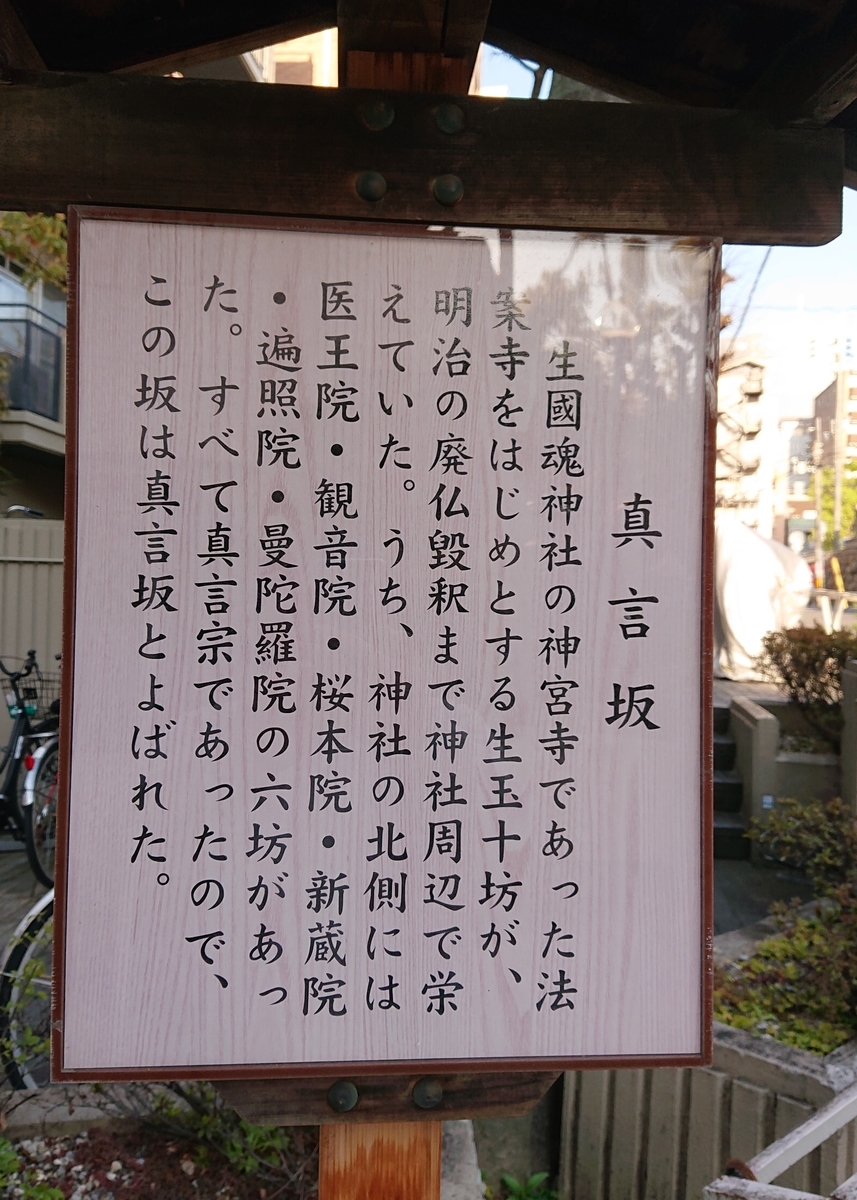 真言坂
生國魂神社の神宮寺であった法
案寺をはじめとする生玉十坊が、
明治の廃仏毀釈まで神社周辺で栄
えていた。うち、神社の北側には
医王院・観音院・桜本院・新蔵院
・遍照院・曼陀羅院の六坊があっ
た。すべて真言宗であったので、
この坂は真言坂とよばれた。